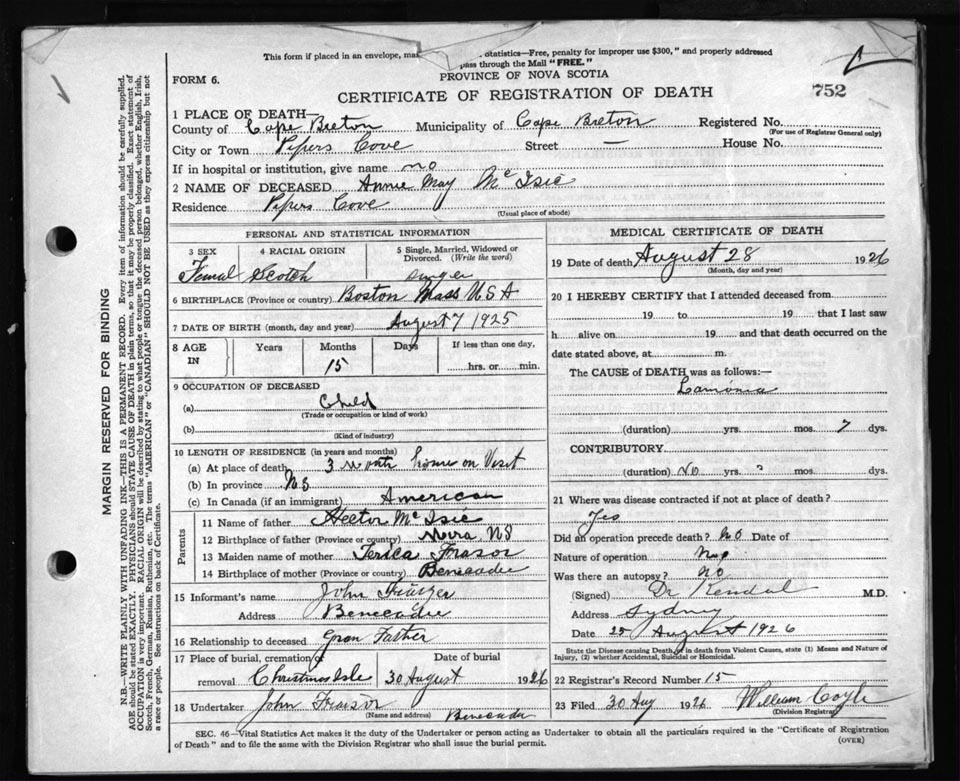 This form if placed in an envelope, mar tatistics—Free, penalty for improper use $300," and properly addressed
pass through the Mail "FREE."
PROVINCE OF NOVA SCOTIA
FORM 6.
CERTIFICATE OF REGISTRATION OF DEATH
752
1 PLACE OF DEATH—
County of Cape Breton Municipality of Cape Breton Registered No.
(For use of Registrar General only)
City or Town Pipers Cove Street — House No.
If in hospital or institution, give name no
2 NAME OF DECEASED Annie May McIsic
Residence Pipers Cove
(Usual place of abode)
PERSONAL AND STATISTICAL INFORMATION
3 SEX 4 RACIAL ORIGIN 5 Single, Married, Widowed or Divorced. (Write the word)
Femal Scotch
6 BIRTHPLACE (Province or country) Boston Mass USA
7 DATE OF BIRTH (month, day and year) August 7 1925
8 AGE IN Years Months Days If less than one day,
15 hrs. or min.
9 OCCUPATION OF DECEASED
(a) Child
(Trade or occupation or kind of work)
(b)
(Kind of industry)
10 LENGTH OF RESIDENCE (in years and months)
(a) At place of death 3 Month home on Visit
(b) In province NS
(c) In Canada (if an immigrant) American
Parents
11 Name of father Hector McIsic
12 Birthplace of father (Province or country) NS
13 Maiden name of mother Frasor
14 Birthplace of mother (Province or country) Beneadie
15 Informant's name John
Address Beneadie
16 Relationship to deceased Gran Father
17 Place of burial, cremation or Date of burial
removal Christmas Isle 30 August 1926
18 Undertaker John
(Name and address) Beneadie
MEDICAL CERTIFICATE OF DEATH
19 Date of death August 28 1926
(Month, day and year)
20 I HEREBY CERTIFY that I attended deceased from
19 to 19 that I last saw
h alive on 19 and that death occurred on the
date stated above, at m.
The CAUSE of DEATH was as follows:—
(duration) yrs. mos. 7 dys.
CONTRIBUTORY
(duration) No yrs. mos. dys.
21 Where was disease contracted if not at place of death?
Yes
Did an operation precede death? No Date of —
Nature of operation No
Was there an autopsy? no
(Signed) Dr Kendal M.D.
Address Sydney
Date 25 August 1926
State the Disease causing Death, or in death from Violent Causes, state (1) Means and Nature of
Injury, (2) whether Accidental, Suicidal or Homicidal.
22 Registrar's Record Number 15
23 Filed 30 Aug 1926 William Coyle
(Division Registrar)
SEC. 46—Vital Statistics Act makes it the duty of the Undertaker or person acting as Undertaker to obtain all the particulars required in the "Certificate of Registration
of Death" and to file the same with the Division Registrar who shall issue the burial permit.
(OVER)
MARGIN RESERVED FOR BINDING
N.B.—WRITE PLAINLY WITH UNFADING INK—THIS IS A PERMANENT RECORD. Every item of information should be carefully supplied.
AGE should be stated EXACTLY. PHYSICIANS should STATE CAUSE OF DEATH in plain terms, so that it may be properly classified. Exact statement of
OCCUPATION is very important. RACIAL ORIGIN will be described by stating to what people or tongue the deceased person belonged, whether English, Irish,
Scotch, French, German, Russian, Ruthenian, etc. The terms "AMERICAN" or "CANADIAN" SHOULD NOT BE USED as they express citizenship but not
a race or people. See instructions on back of Certificate.